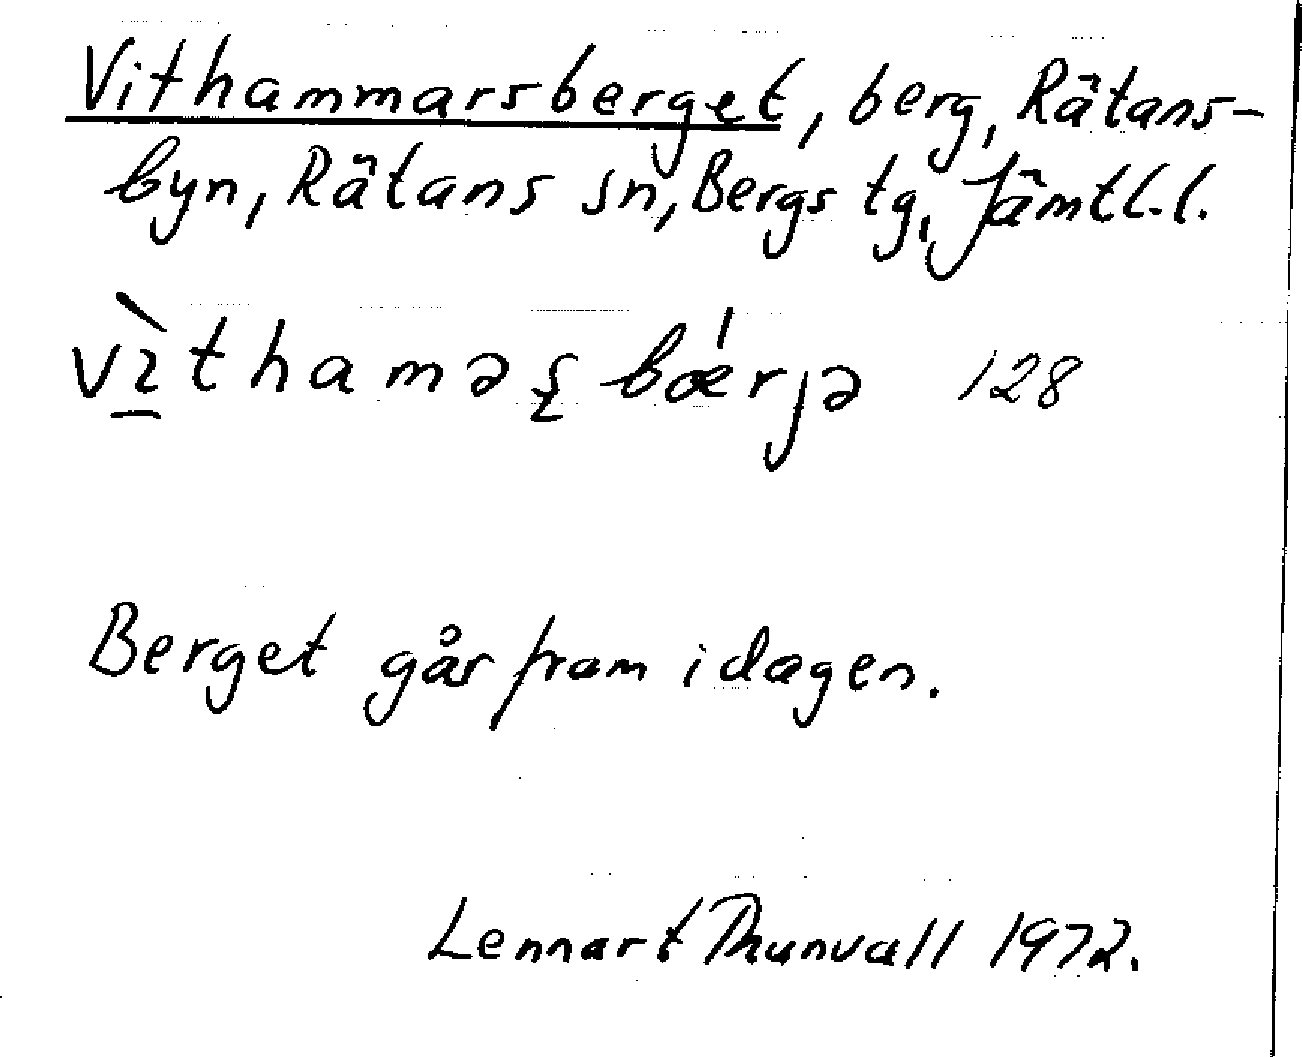 Vithammarsberget, berg, Rätans-
byn, Rätans sn, Bergs tg, Jämtl.l.
vı̲̀thamәʂbǽrjә 128
Berget går fram i dagen.
Lennart Thunvall 1972.